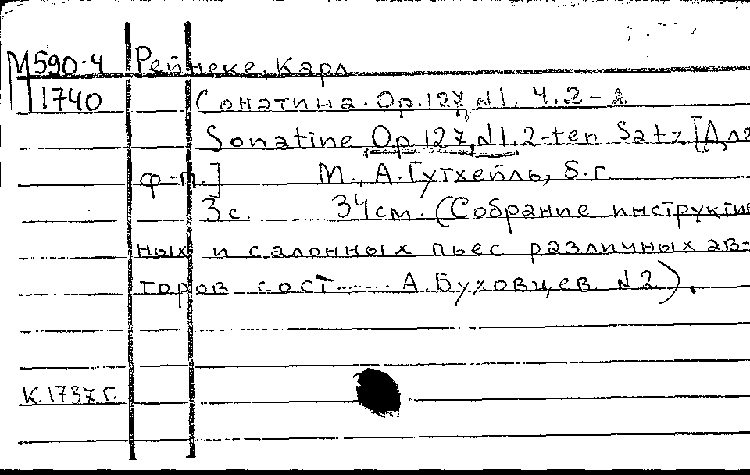 М590-4 Рейнеке, Карл
1740 Сонатина. Op. 127, N1. Ч.2-я
Sonatine Op. 127, N1. 2-ten Satz [Для
ф-п.] М., А. Гутхейль, б.г.
3 с. 34 см. (Собрание инструктив
ных и салонных пьес различных ав-
торов сост..... А. Буховцев. N2).
К.1737г.